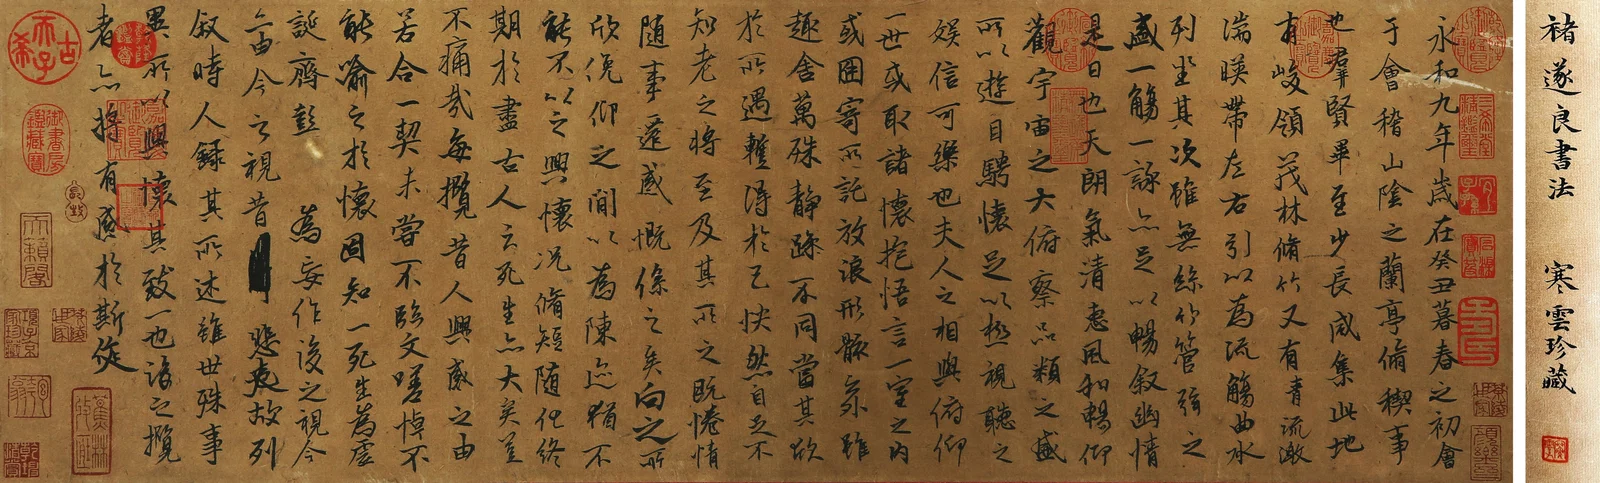 褚遂良書法 寒雲珍藏
永和九年歲在癸丑暮春之初會
于會稽山陰之蘭亭脩稧事
也羣賢畢至少長咸集此地
有峻領茂林脩竹又有清流激
湍暎帶左右引以為流觴曲水
列坐其次雖無絲竹管弦之
盛一觴一詠亦足以暢叙幽情
是日也天朗氣清惠風和暢仰
觀宇宙之大俯察品類之盛
所以遊目騁懷足以極視聽之
娛信可樂也夫人之相與俯仰
一世或取諸懷抱悟言一室之內
或因寄所託放浪形骸之外雖
趣舍萬殊靜躁不同當其欣
於所遇暫得於己快然自足不
知老之將至及其所之既惓情
隨事遷感慨係之矣向之所
欣俛仰之閒以為陳迹猶不
能不以之興懷況脩短隨化終
期於盡古人云死生亦大矣豈
不痛哉每攬昔人興感之由
若合一契未嘗不臨文嗟悼不
能喻之於懷固知一死生為虛
誕齊彭為妄作後之視今
亦由今之視昔悲夫故列
叙時人錄其所述雖世殊事
異所以興懷其致一也後之攬
者亦將有感於斯文
古希天子
御書房鑑藏寶
天籟閣
三希堂精鑑璽
宜子孫